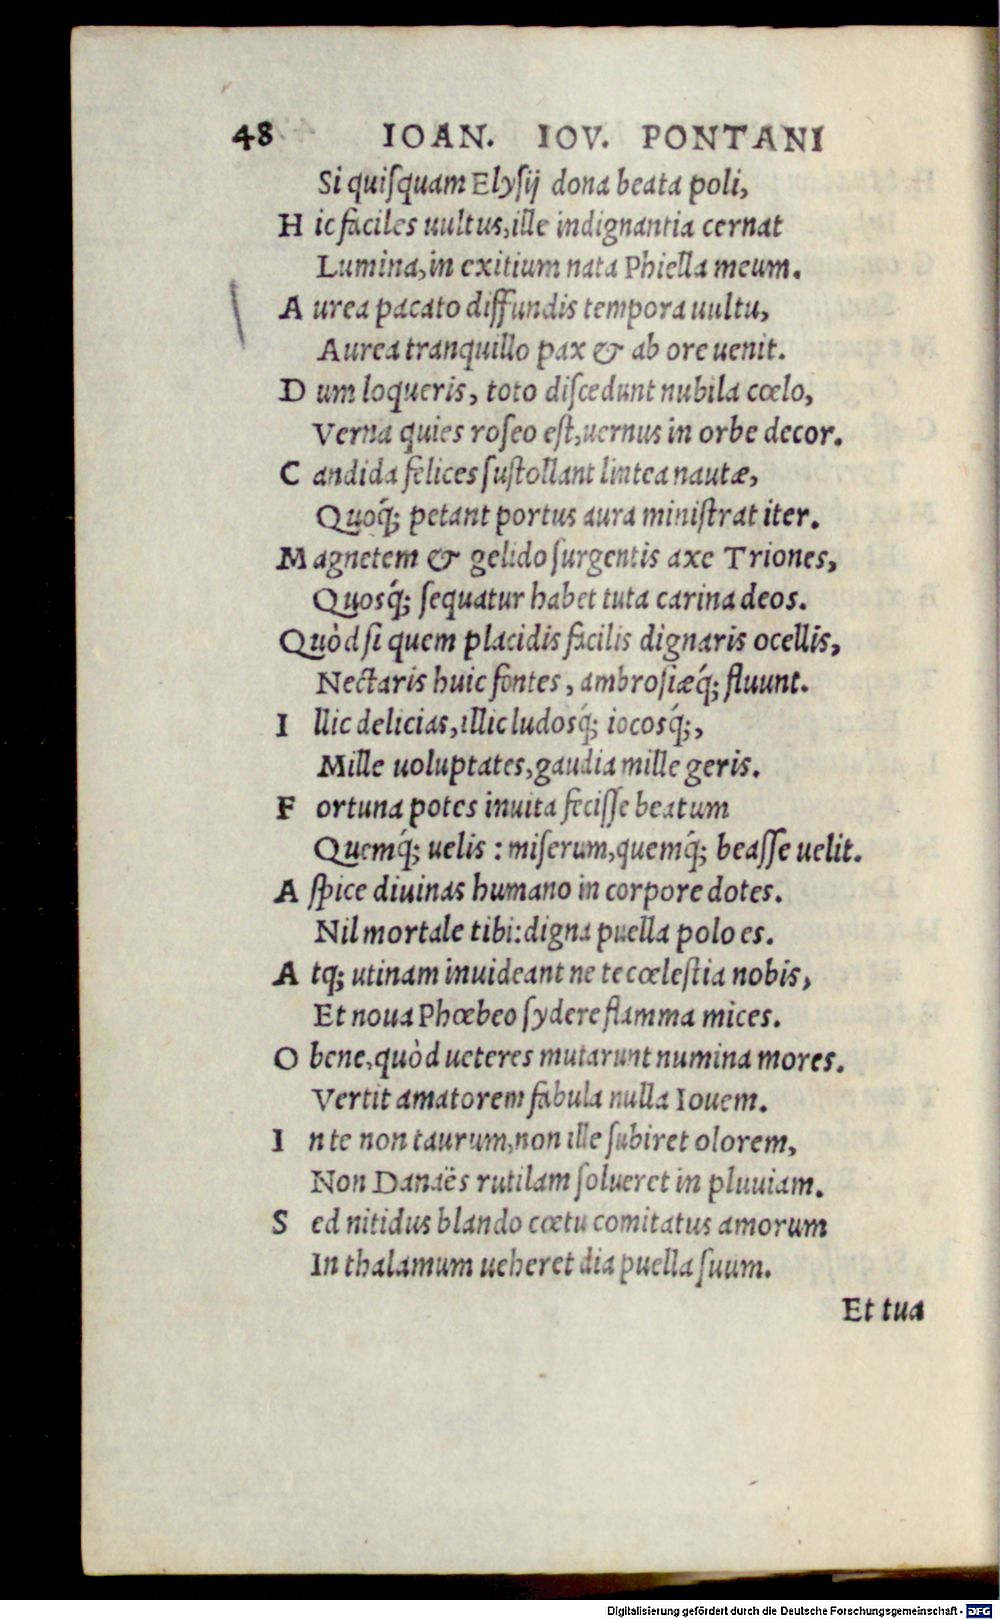 48 IOAN. IOV. PONTANI
Si quiſquam Elyſij dona beata poli,
H ic faciles uultus, ille indignantia cernat
Lumina, in exitium nata Phiella meum.
A urea pacato diffundis tempora uultu,
Aurea tranquillo pax & ab ore uenit.
D um loqueris, toto diſcedunt nubila cœlo,
Verna quies roſeo eſt, uernus in orbe decor.
C andida felices ſuſtollant lintea nautæ,
Quoq́; petant portus aura miniſtrat iter.
M agnetem & gelido ſurgentis axe Triones,
Quosq́; ſequatur habet tuta carina deos.
Quòd ſi quem placidis facilis dignaris ocellis,
Nectaris huic fontes, ambroſiæq́; fluunt.
I llic delicias, illic ludosq́; iocosq́;,
Mille uoluptates, gaudia mille geris.
F ortuna potes inuita feciſſe beatum
Quemq́; uelis: miſerum, quemq́; beaſſe uelit.
A ſpice diuinas humano in corpore dotes.
Nil mortale tibi: digna puella polo es.
A tq; utinam inuideant ne te cœleſtia nobis,
Et noua Phœbeo ſydere flamma mices.
O bene, quòd ueteres mutarunt numina mores.
Vertit amatorem fabula nulla Iouem.
I n te non taurum, non ille ſubiret olorem,
Non Danaës rutilam ſolueret in pluuiam.
S ed nitidus blando cœtu comitatus amorum
In thalamum ueheret dia puella ſuum.
Et tua
Digitalisierung gefördert durch die Deutsche Forschungsgemeinschaft - DFG